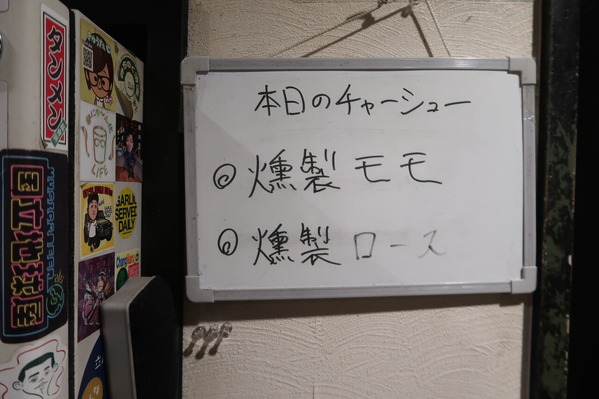 本日のチャーシュー
◎燻製モモ
◎燻製ロース
タンメン
GARLIC
SERVED
DAILY
LIFE